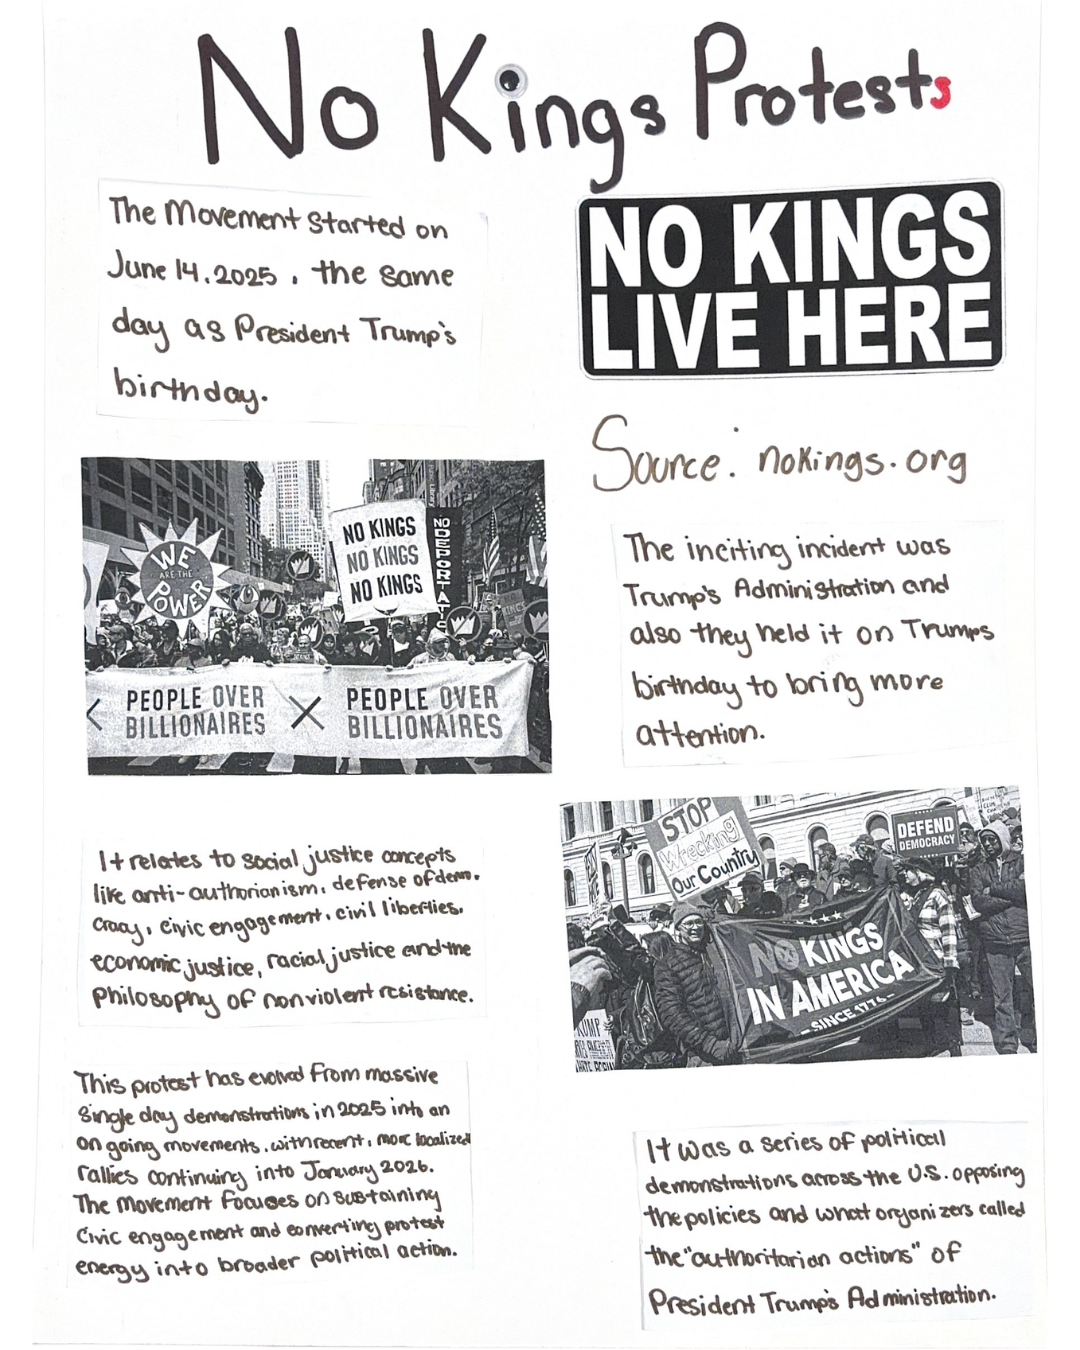 No Kings Protests
The Movement started on
June 14. 2025 , the same
day as President Trump's
birthday.
NO KINGS
LIVE HERE
Source: nokings.org
WE
ARE THE
POWER
NO KINGS
NO KINGS
NO KINGS
PEOPLE OVER
BILLIONAIRES
PEOPLE OVER
BILLIONAIRES
The inciting incident was
Trump's Administration and
also they held it on Trumps
birthday to bring more
attention.
STOP
Wrecking
Our Country
DEFEND
DEMOCRACY
NO KINGS
IN AMERICA
- SINCE 1776 -
It relates to social justice concepts
like anti-authorianism, defense of dem.
cracy, civic engagement, civil liberties.
economic justice, racial justice and the
Philosophy of nonviolent resistance.
This protest has evolved from massive
single day demonstrations in 2025 into an
on going movements, with recent, more localized
rallies continuing into January 2026.
The movement focuses on sustaining
civic engagement and converting protest
energy into broader political action.
It was a series of political
demonstrations across the U.S. opposing
the policies and what organizers called
the "authoritarian actions" of
President Trump's Administration.